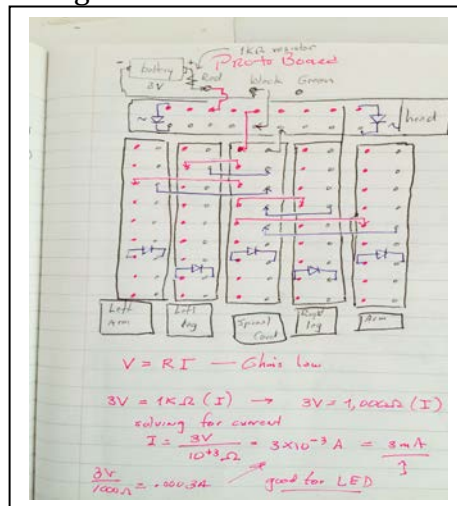 1KΩ resistor
- battery +
3V
Red
Proto Board
black Green
head
Left Arm
Left leg
Spinal Cord
Right leg
Arm
V = R I — Ohms law
3V = 1KΩ (I) → 3V = 1,000Ω (I)
solving for current
I = 3V / 10⁺³ Ω = 3×10⁻³ A = 3mA
3V / 1000Ω = .0003A good for LED